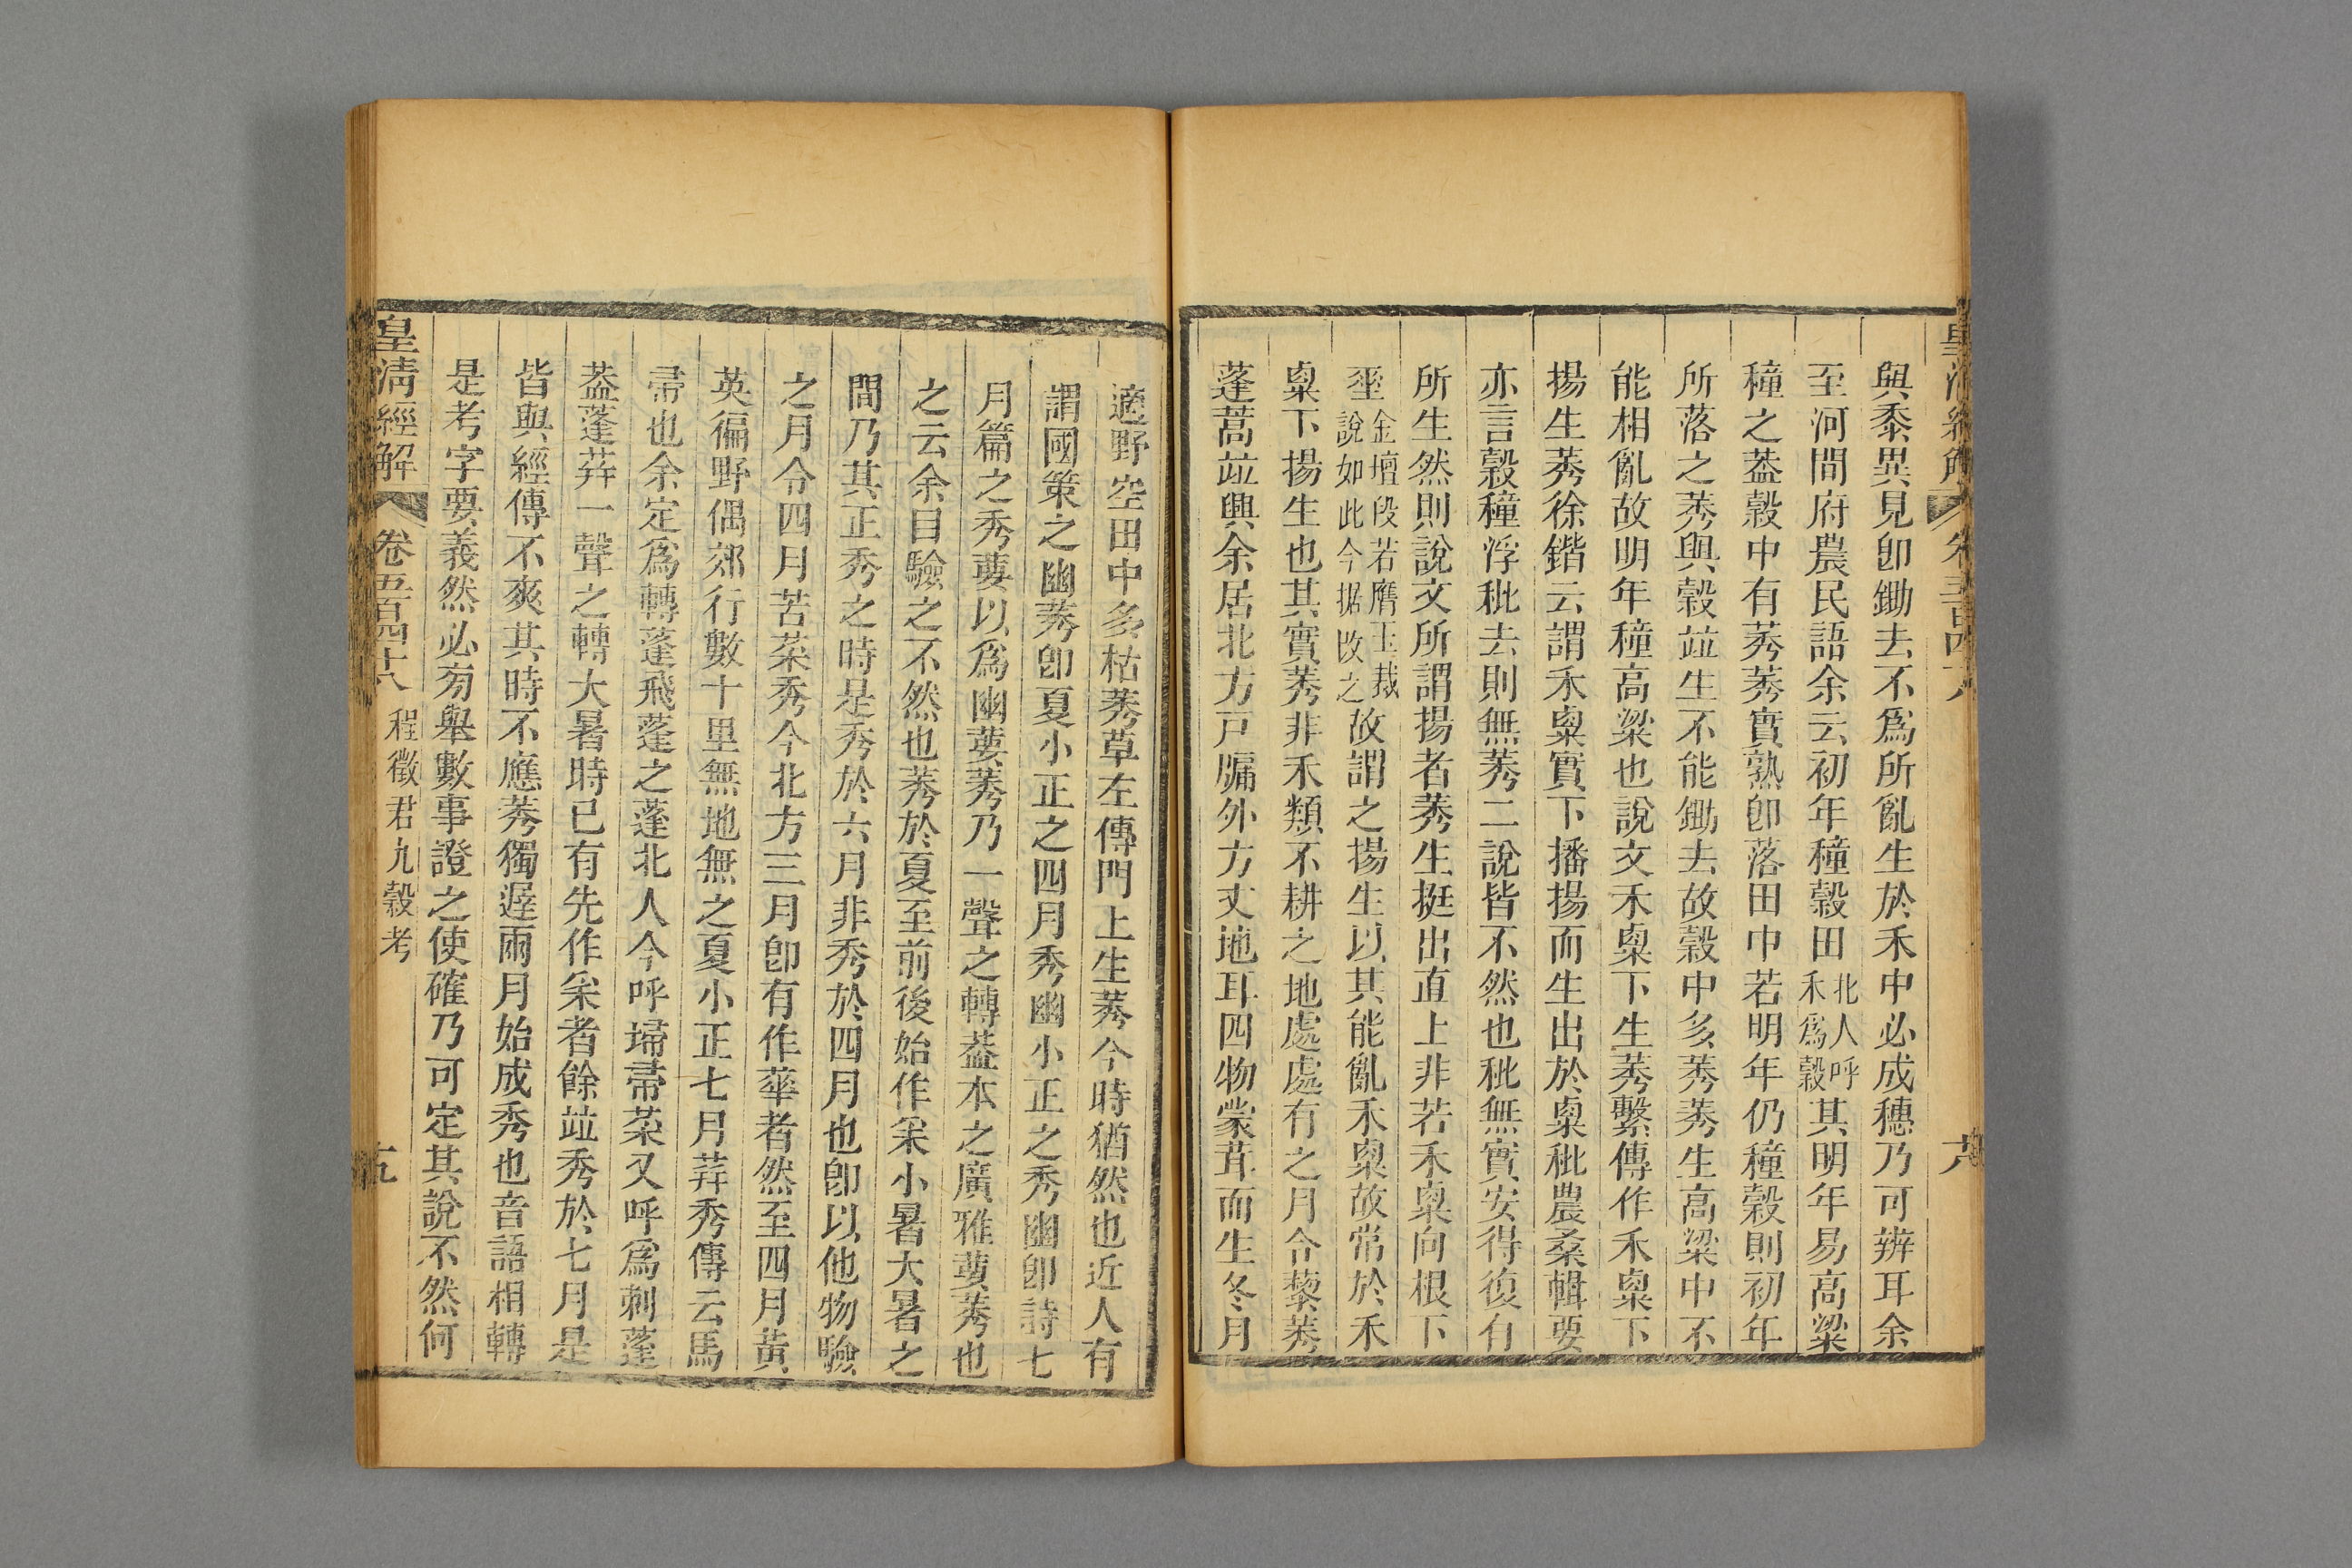 與黍異見卽鋤去不爲所亂生於禾中必成穗乃可辨耳余
至河間府農民語余云初年穜穀田北人呼禾爲穀其明年易高粱
穜之葢穀中有莠莠實熟卽落田中若明年仍穜穀則初年
所落之莠與穀竝生不能鋤去故穀中多莠莠生高粱中不
能相亂故明年穜高粱也說文禾粟下生莠繫傳作禾粟下
揚生莠徐鍇云謂禾粟實下播揚而生出於粟秕農桑輯要
亦言穀穜浮秕去則無莠二說皆不然也秕無實安得復有
所生然則說文所謂揚者莠生挺出直上非若禾粟向根下
坙金壇段若膺玉裁說如此今据改之故謂之揚生以其能亂禾粟故常於禾
粟下揚生也其實莠非禾類不耕之地處處有之月令藜莠
蓬蒿竝興余居北方戸牖外方丈地耳四物蒙茸而生冬月
適野空田中多枯莠草左傳門上生莠今時猶然也近人有
謂國策之幽莠卽夏小正之四月秀幽小正之秀幽卽詩七
月篇之秀葽以爲幽葽莠乃一聲之轉葢本之廣雅葽莠也
之云余目驗之不然也莠於夏至前後始作采小暑大暑之
間乃其正秀之時是秀於六月非秀於四月也卽以他物驗
之月令四月苦菜秀今北方三月卽有作華者然至四月黃
英徧野偶郊行數十里無地無之夏小正七月荓秀傳云馬
帚也余定爲轉蓬飛蓬之蓬北人今呼埽帚菜又呼爲刺蓬
葢蓬荓一聲之轉大暑時已有先作采者餘竝秀於七月是
皆與經傳不爽其時不應莠獨遲兩月始成秀也音語相轉
是考字要義然必菊舉數事證之使確乃可定其說不然何
皇清經解
卷五百四十八
程徵君九穀考
十九